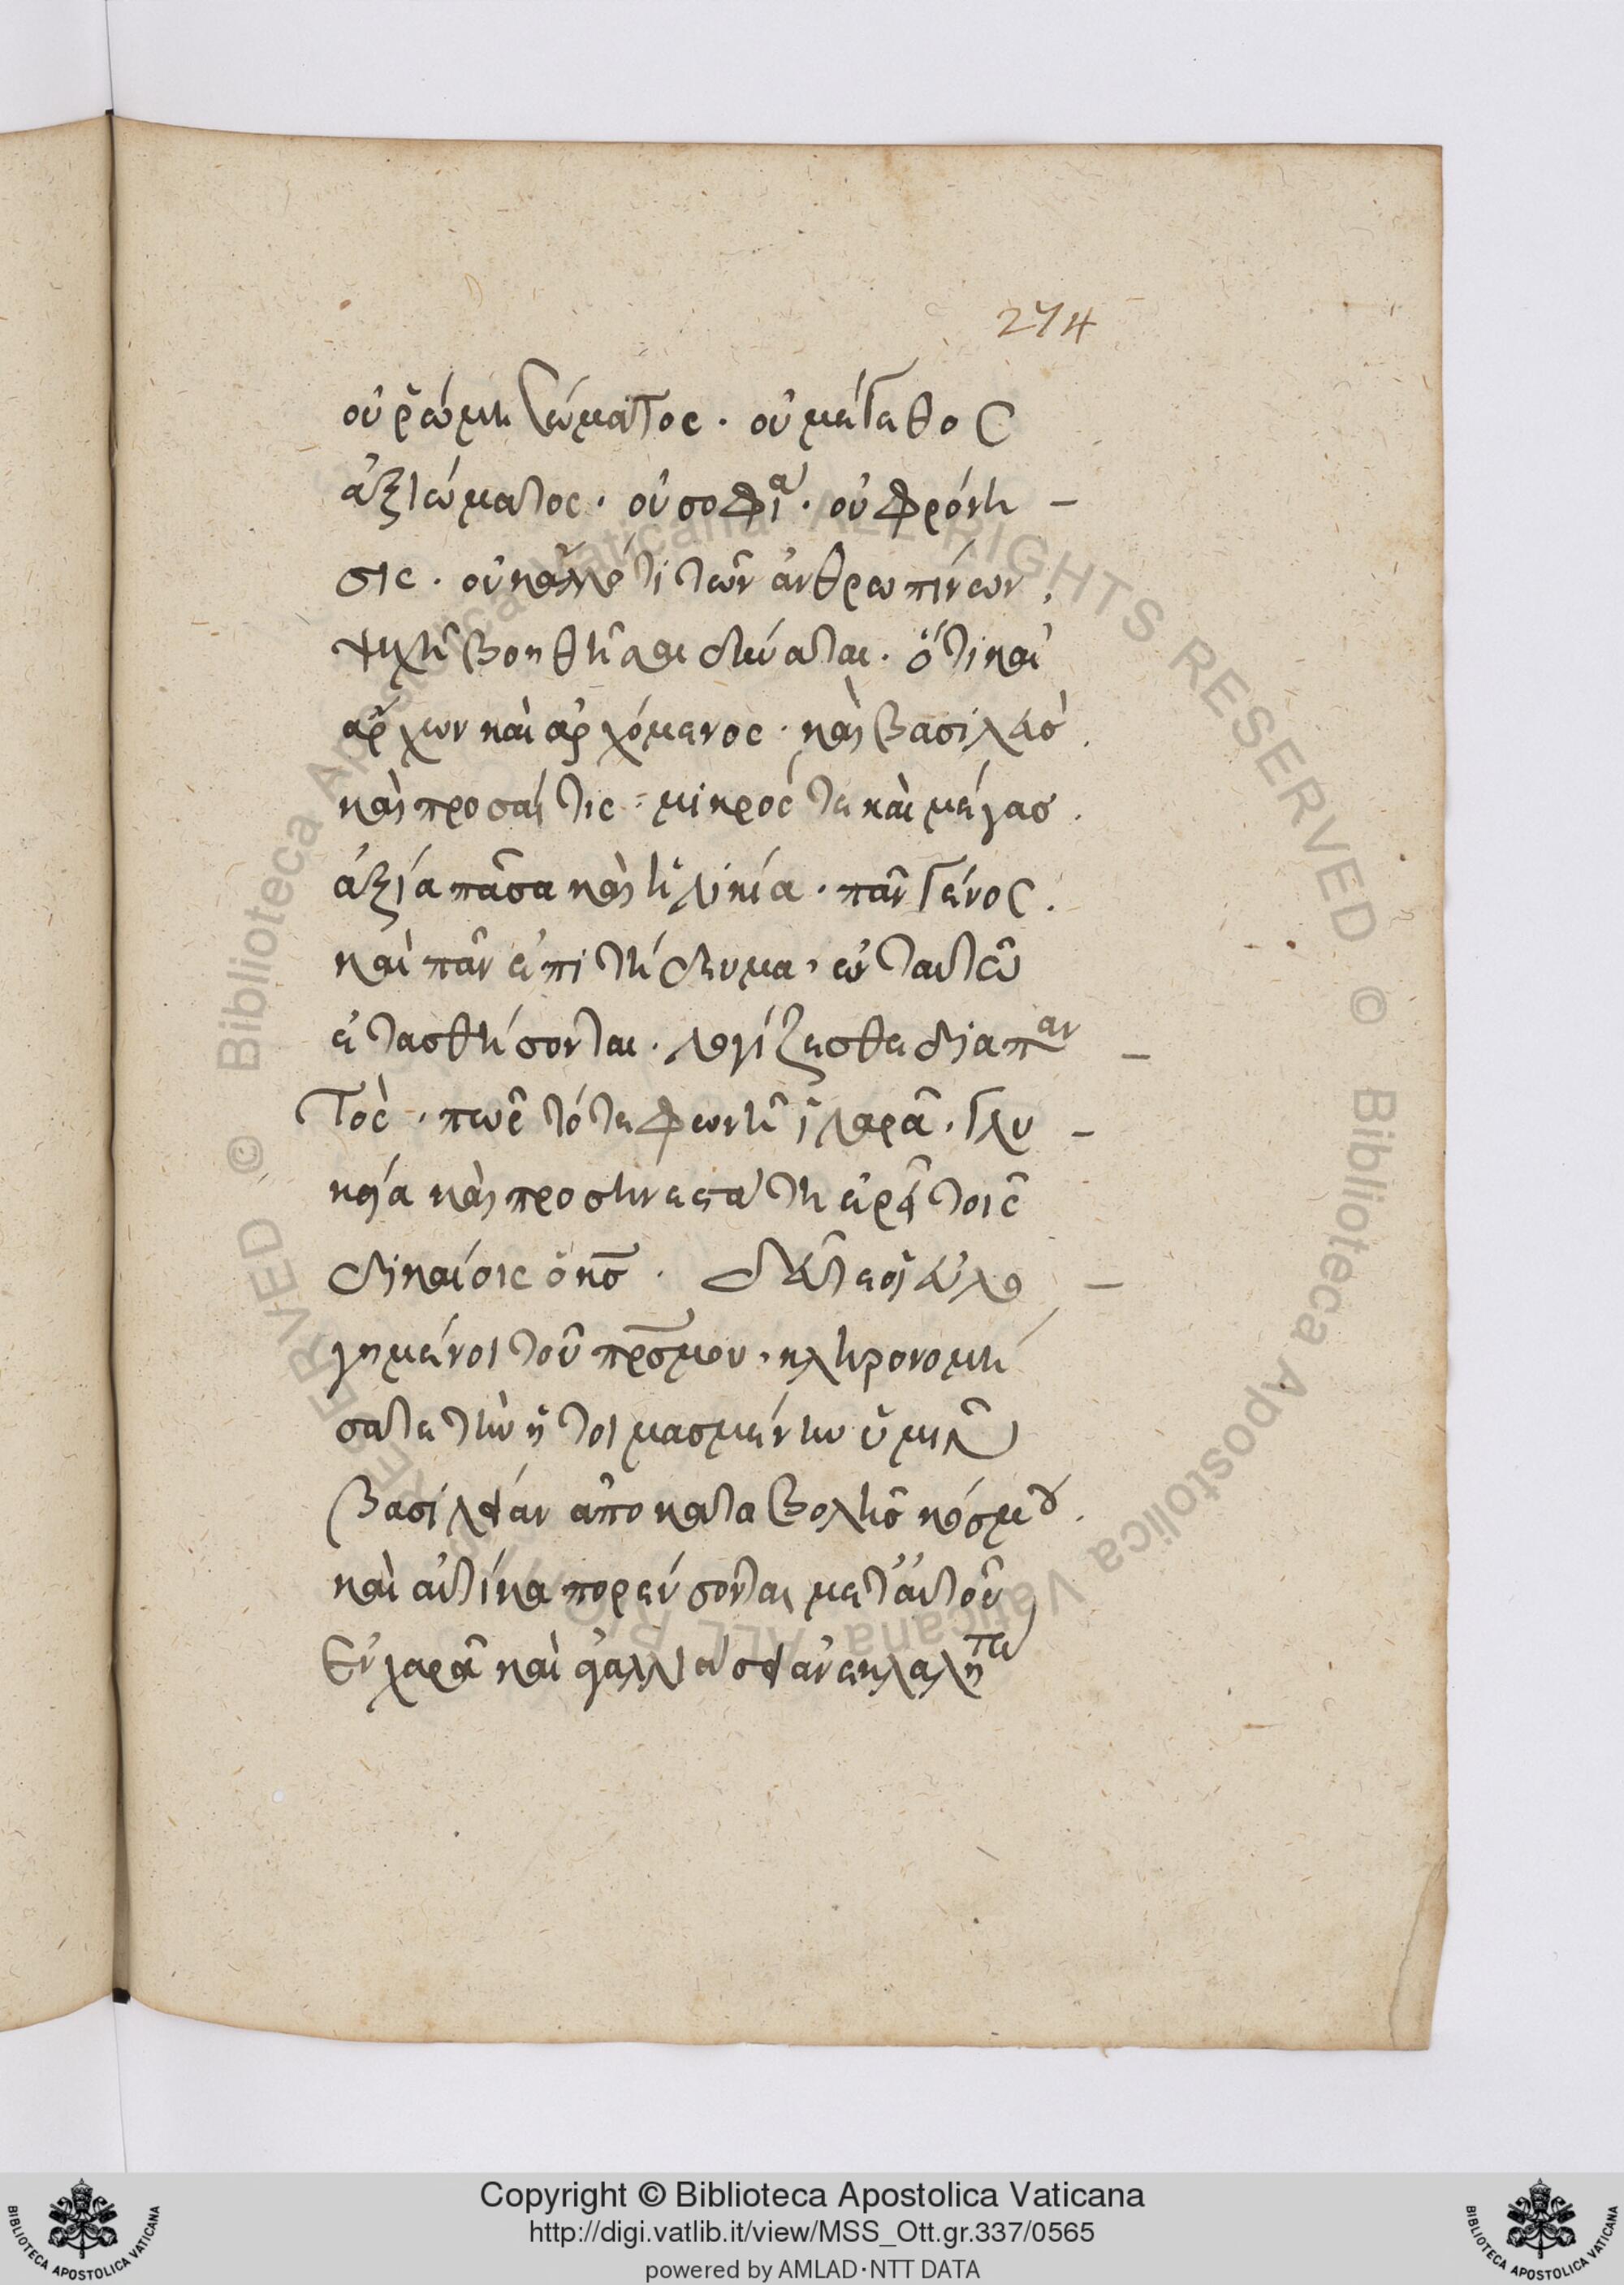 274
οὐ ῥώμη σώματος. οὐ μέγεθος
ἀξιώματος. οὐ σοφία. οὐ φρόνη-
σις. οὐκ ἄλλό τι τῶν ἀνθρωπίνων.
ψυχῆ βοηθῆσαι δύναται. ὅτι καὶ
ἄρχων καὶ ἀρχόμενος. καὶ βασιλεὺσ.
καὶ προσαίτις. μικρός τε καὶ μέγασ.
ἀξία πᾶσα καὶ ἡλικία. πᾶν γένος.
καὶ πᾶν ἐπιτήδευμα. ἐν ταυτῶ
ἐτασθήσονται. λογίζεσθε διαπαν-
τὸς. πῶς τότε φωνῆ ἱλαρᾶ. γλυ-
κεία καὶ προσηνεστάτη εἰρεῖ τοῖς
δικαίοις ὁ κσ. δεῦτε οἱ εὐλο-
γημένοι τοῦ πρσ μου. κληρονομή
σατε τὴν ἡτοιμασμένην ὑμῖν
βασιλείαν ἀπο καταβολῆσ κόσμου.
καὶ αὐτίκα πορεύσονται μετ' αὐτοῦ
ἐν χαρᾶ καὶ ἀγαλλιάσει ἀνεκλαλήτω
Copyright © Biblioteca Apostolica Vaticana
http://digi.vatlib.it/view/MSS_Ott.gr.337/0565
powered by AMLAD·NTT DATA
BIBLIOTECA APOSTOLICA VATICANA
BIBLIOTECA APOSTOLICA VATICANA
© Biblioteca Apostolica Vaticana ALL RIGHTS RESERVED © Biblioteca Apostolica Vaticana ALL RIGHTS RESERVED